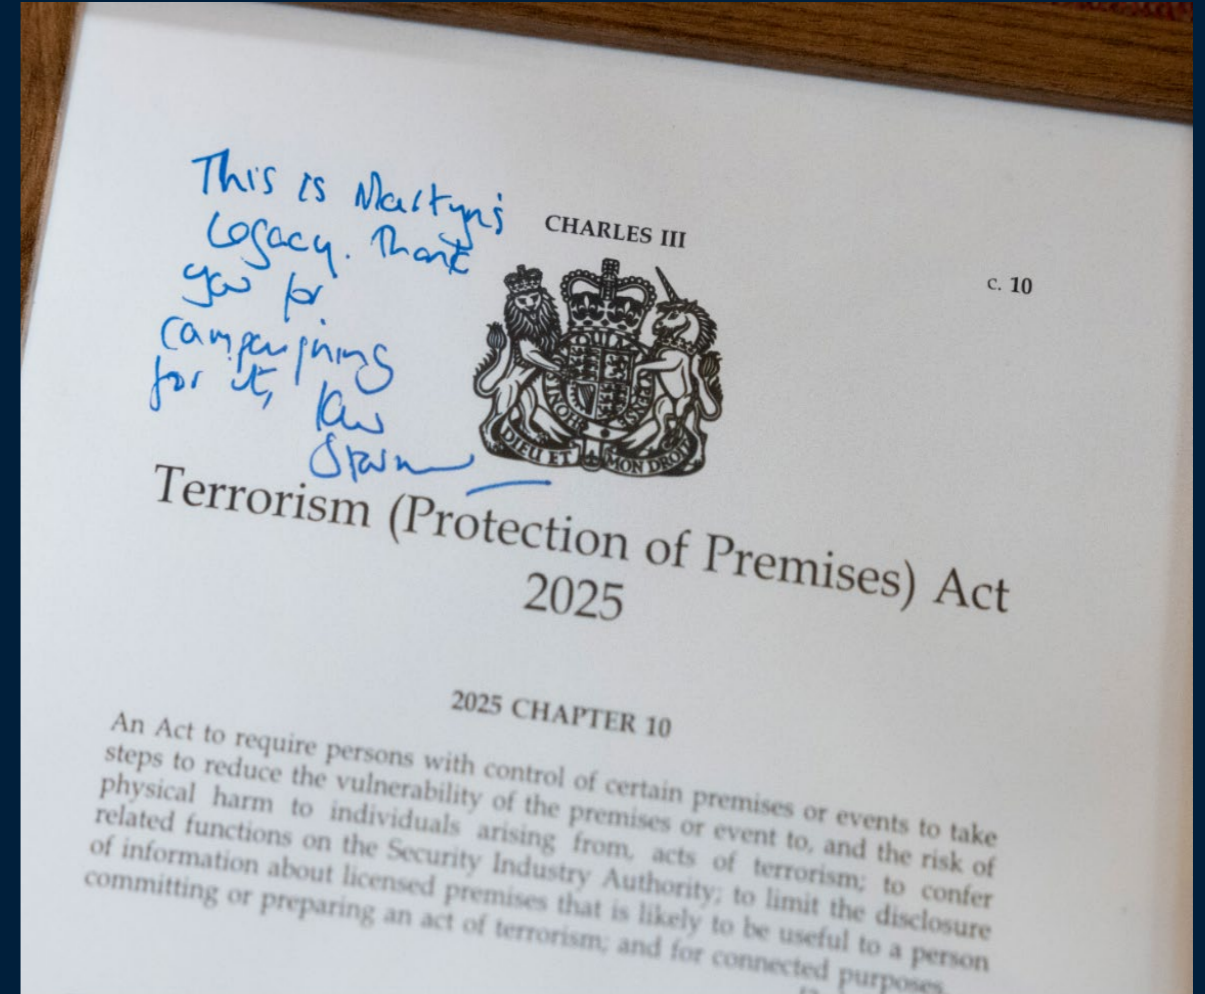 This is Martyn's
Legacy. Thank
you for
campaigning
for it,
Keir
Starmer
CHARLES III
c. 10
HONI
PENSE
DIEU ET
MON DROIT
Terrorism (Protection of Premises) Act
2025
2025 CHAPTER 10
An Act to require persons with control of certain premises or events to take
steps to reduce the vulnerability of the premises or event to, and the risk of
physical harm to individuals arising from, acts of terrorism; to confer
related functions on the Security Industry Authority; to limit the disclosure
of information about licensed premises that is likely to be useful to a person
committing or preparing an act of terrorism; and for connected purposes.